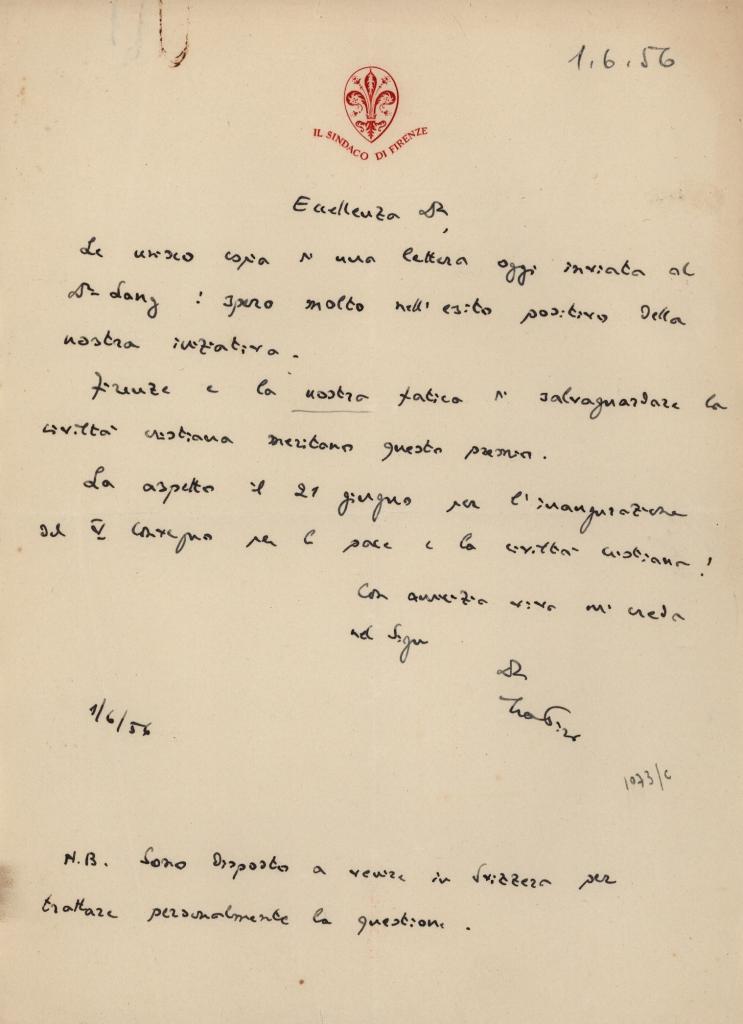 1.6.56
IL SINDACO DI FIRENZE
Eccellenza
Le unisco copia di una lettera oggi inviata al
Dr Lang! Spero molto nell'esito positivo della
nostra iniziativa.
Firenze e la nostra fatica di salvaguardare la
civiltà cristiana meritano questo premio.
La aspetto il 21 giugno per l'inaugurazione
del V Convegno per la pace e la civiltà cristiana!
Con amicizia viva mi creda
nel Sign
1/6/56
1073/C
N.B. Sono disposto a venire in Svizzera per
trattare personalmente la questione.